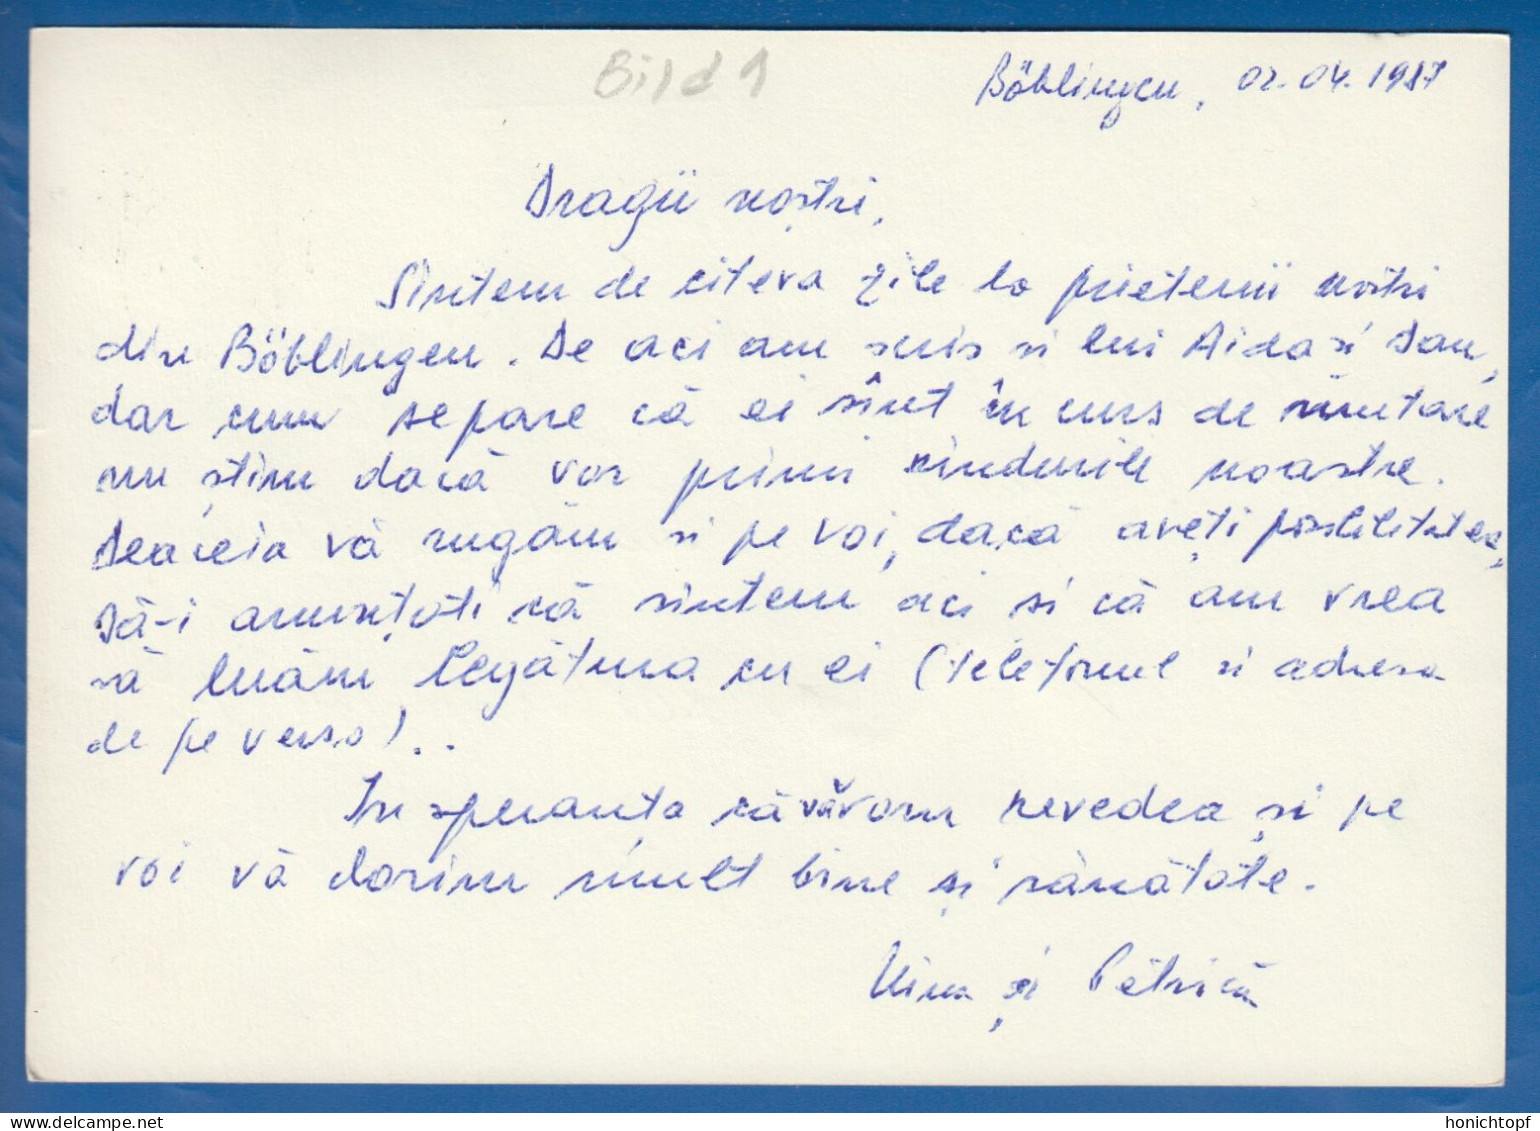 Bild 1
Böblingen, 02.04.1987
Dragii noștri,
Sintem de citeva zile la prietenii noștri
din Böblingen. De aci am scris si lui Aida si Dan,
dar cum se pare că ei sînt în curs de mutare
nu știm dacă vor primi rindurile noastre.
Deaceia vă rugăm si pe voi, dacă aveți posibilitatea,
să-i anunțati că sintem aci si că am vrea
să luăm legătura cu ei (telefonul si adresa
de pe verso)..
In speranța că vă vom revedea și pe
voi vă dorim mult bine și sănătate.
Nina și Petrică
www.delcampe.net
honichtopf